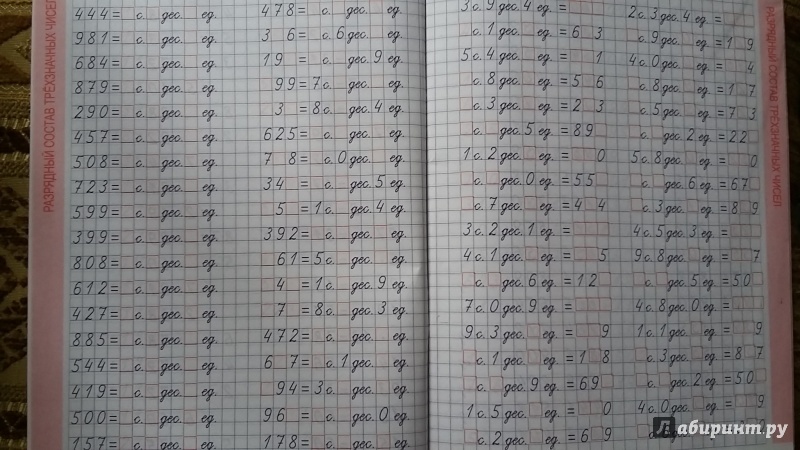 РАЗРЯДНЫЙ СОСТАВ ТРЁХЗНАЧНЫХ ЧИСЕЛ
444= с. дес. ед.
981= с. дес. ед.
684= с. дес. ед.
879= с. дес. ед.
290= с. дес. ед.
457= с. дес. ед.
508= с. дес. ед.
723= с. дес. ед.
599= с. дес. ед.
399= с. дес. ед.
808= с. дес. ед.
612= с. дес. ед.
427= с. дес. ед.
885= с. дес. ед.
544= с. дес. ед.
419= с. дес. ед.
500= с. дес. ед.
157= с. дес. ед.
478= с. дес. ед.
3 6= с. 6 дес. ед.
19 = с. дес. 9 ед.
99=7 с. дес. ед.
3 =8 с. дес. 4 ед.
625= с. дес. ед.
7 8= с. 0 дес. ед.
34 = с. дес. 5 ед.
5 =1 с. дес. 4 ед.
392= с. дес. ед.
61=5 с. дес. ед.
4 =1 с. дес. 9 ед.
7 =8 с. дес. 3 ед.
472= с. дес. ед.
6 7= с. 1 дес. ед.
94=3 с. дес. ед.
96 = с. дес. 0 ед.
178= с. дес. ед.
3 с. 9 дес. 4 ед. =
с. 1 дес. ед. = 6 3
5 с. 4 дес. ед. = 1
с. 8 дес. ед. = 5 6
с. 3 дес. ед. = 2 3
с. дес. 5 ед. = 89
1 с. 2 дес. ед. = 0
с. дес. 0 ед. = 55
с. 7 дес. ед. = 4 4
3 с. 2 дес. 1 ед. =
4 с. 1 дес. ед. = 5
с. дес. 6 ед. = 12
7 с. 0 дес. 9 ед. =
9 с. 3 дес. ед. = 9
с. 1 дес. ед. = 1 8
с. дес. 9 ед. = 69
1 с. 5 дес. ед. = 0
с. 2 дес. ед. = 6 9
2 с. 3 дес. 4 ед. =
с. 9 дес. ед. = 1 9
4 с. 0 дес. ед. = 4
с. 8 дес. ед. = 1 7
с. 5 дес. ед. = 7 3
с. дес. 2 ед. = 22
5 с. 8 дес. ед. = 0
с. дес. 6 ед. = 67
с. 3 дес. ед. = 8 9
4 с. 5 дес. 3 ед. =
9 с. 8 дес. ед. = 7
с. дес. 5 ед. = 50
4 с. 8 дес. 0 ед. =
1 с. 1 дес. ед. = 9
с. 3 дес. ед. = 8 7
с. дес. 2 ед. = 50
4 с. 0 дес. ед. = 9
РАЗРЯДНЫЙ СОСТАВ ТРЁХЗНАЧНЫХ ЧИСЕЛ
Лабиринт.ру